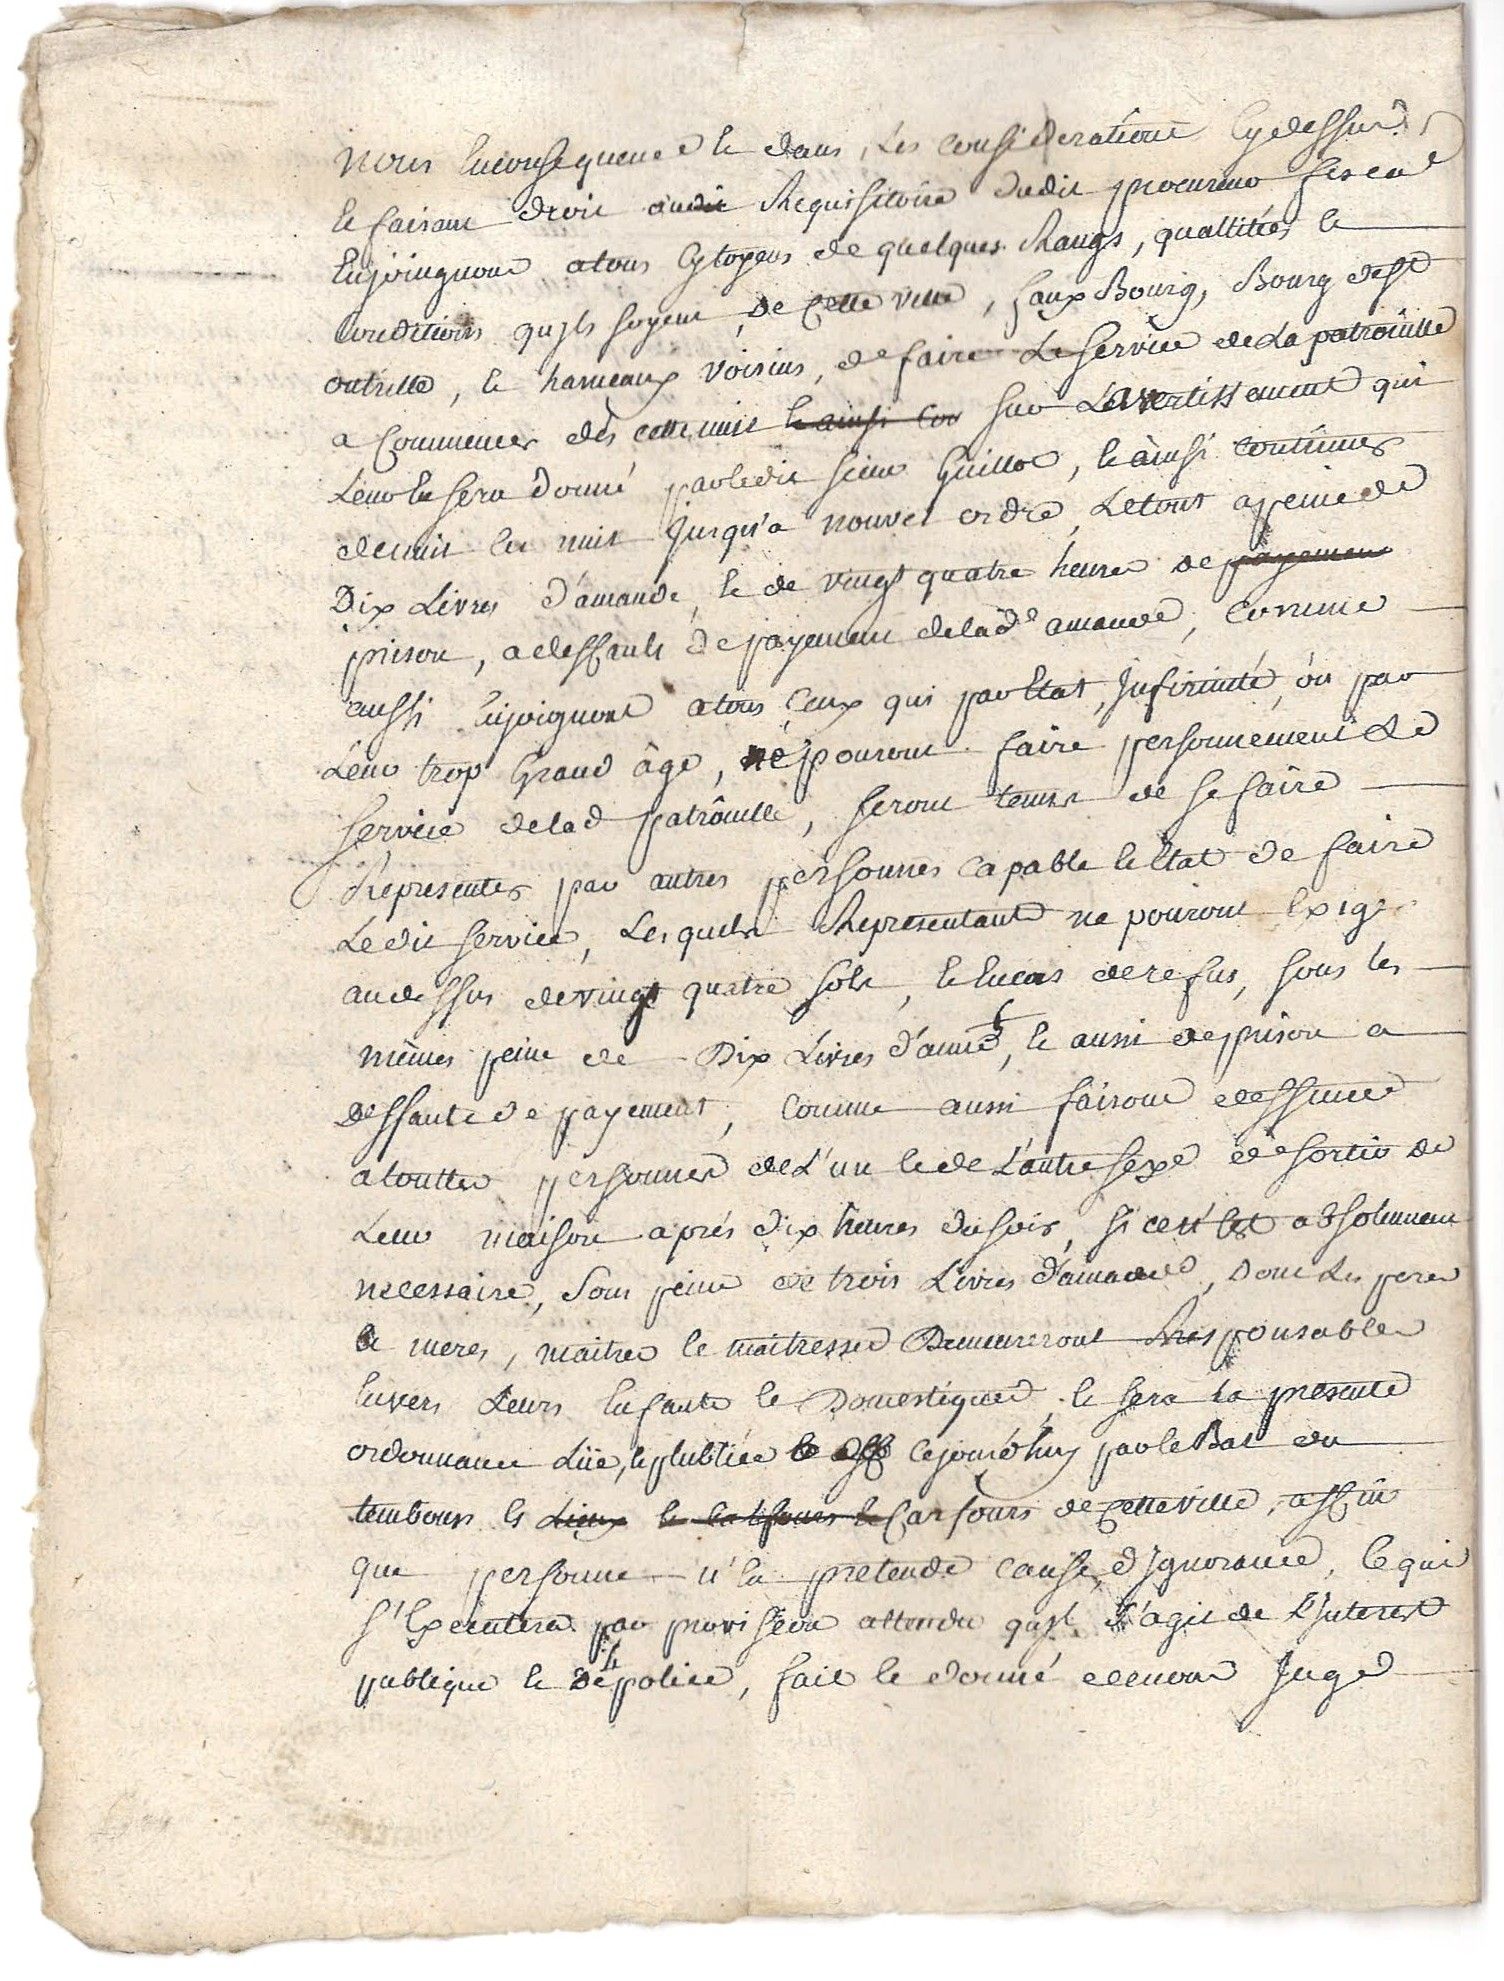 nous enconsequence et dans les considerations cydessus
et faisant droit audit Requisitoire dudit procureur fiscal
Enjoingnons atous Cytoyens de quelques Rangs, quallitées et
conditions quils soyent, de Cette ville, faux Bourg, Bourg dest
outrille, et hameaux voisins, de faire le service de la patroüille
a Commencer dès cette nuit et ainsi con sur Lavertissement qui
Leur en sera donné par ledit sieur Guillot, et ainsi continuer
denuit en nuit jusqu'a nouvel ordre, Letout apeine de
Dix Livres d'amande, et de vingt quatre heures de payement
prison, adeffault de payement delad.e amande, comme
aussi enjoignons atous ceux qui par Etat, jnfirmité, ou par
Leur trop Grand âge, ne pouront faire personnement Le
service delad patroüille, seront tenus de se faire
Representer par autres personnes capable et Etat de faire
Ledit service, Lesquels Representant ne pouront Exiger
audessus devingt quatre sols, et encas derefus, sous les
mêmes peine de Dix Livres d'amde, et aussi deprison a
Deffautte de payement, comme aussi faisons deffence
atouttes personnes de L'un et de L'autre sexe de sortir de
Leur maison après dix heures dusoir, si cen'est absolument
necessaire, sous peine de trois Livres d'amande, dont Les peres
et meres, maitres et maitresses Demeureront Responsables
Envers Leurs Enfants et Domestiques, et sera la presente
ordonnance Lüe, et publiée et aff cejourd'huy par le Bat du
tembours es Lieux et carfours et Carfours de Cette ville, affin
que personne n'en pretende cause d'jgnorance, ce qui
s'Executera par provision attendu qu'jl s'agit de L'Jnterest
publique et de police, fait et donné denous Juge